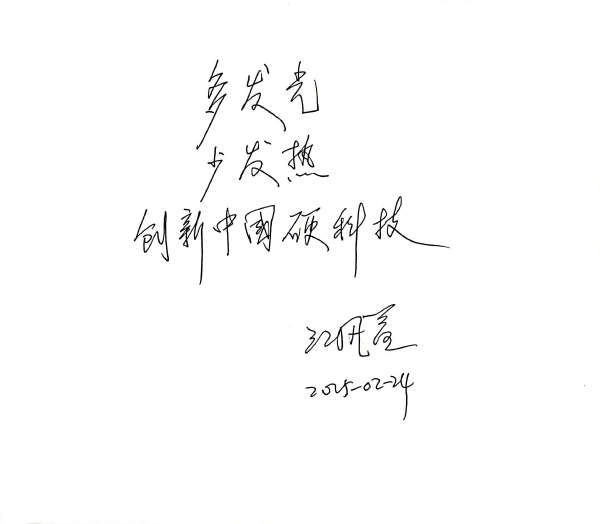 多发光
少发热
创新中國硬科技
江风益
2025-02-24